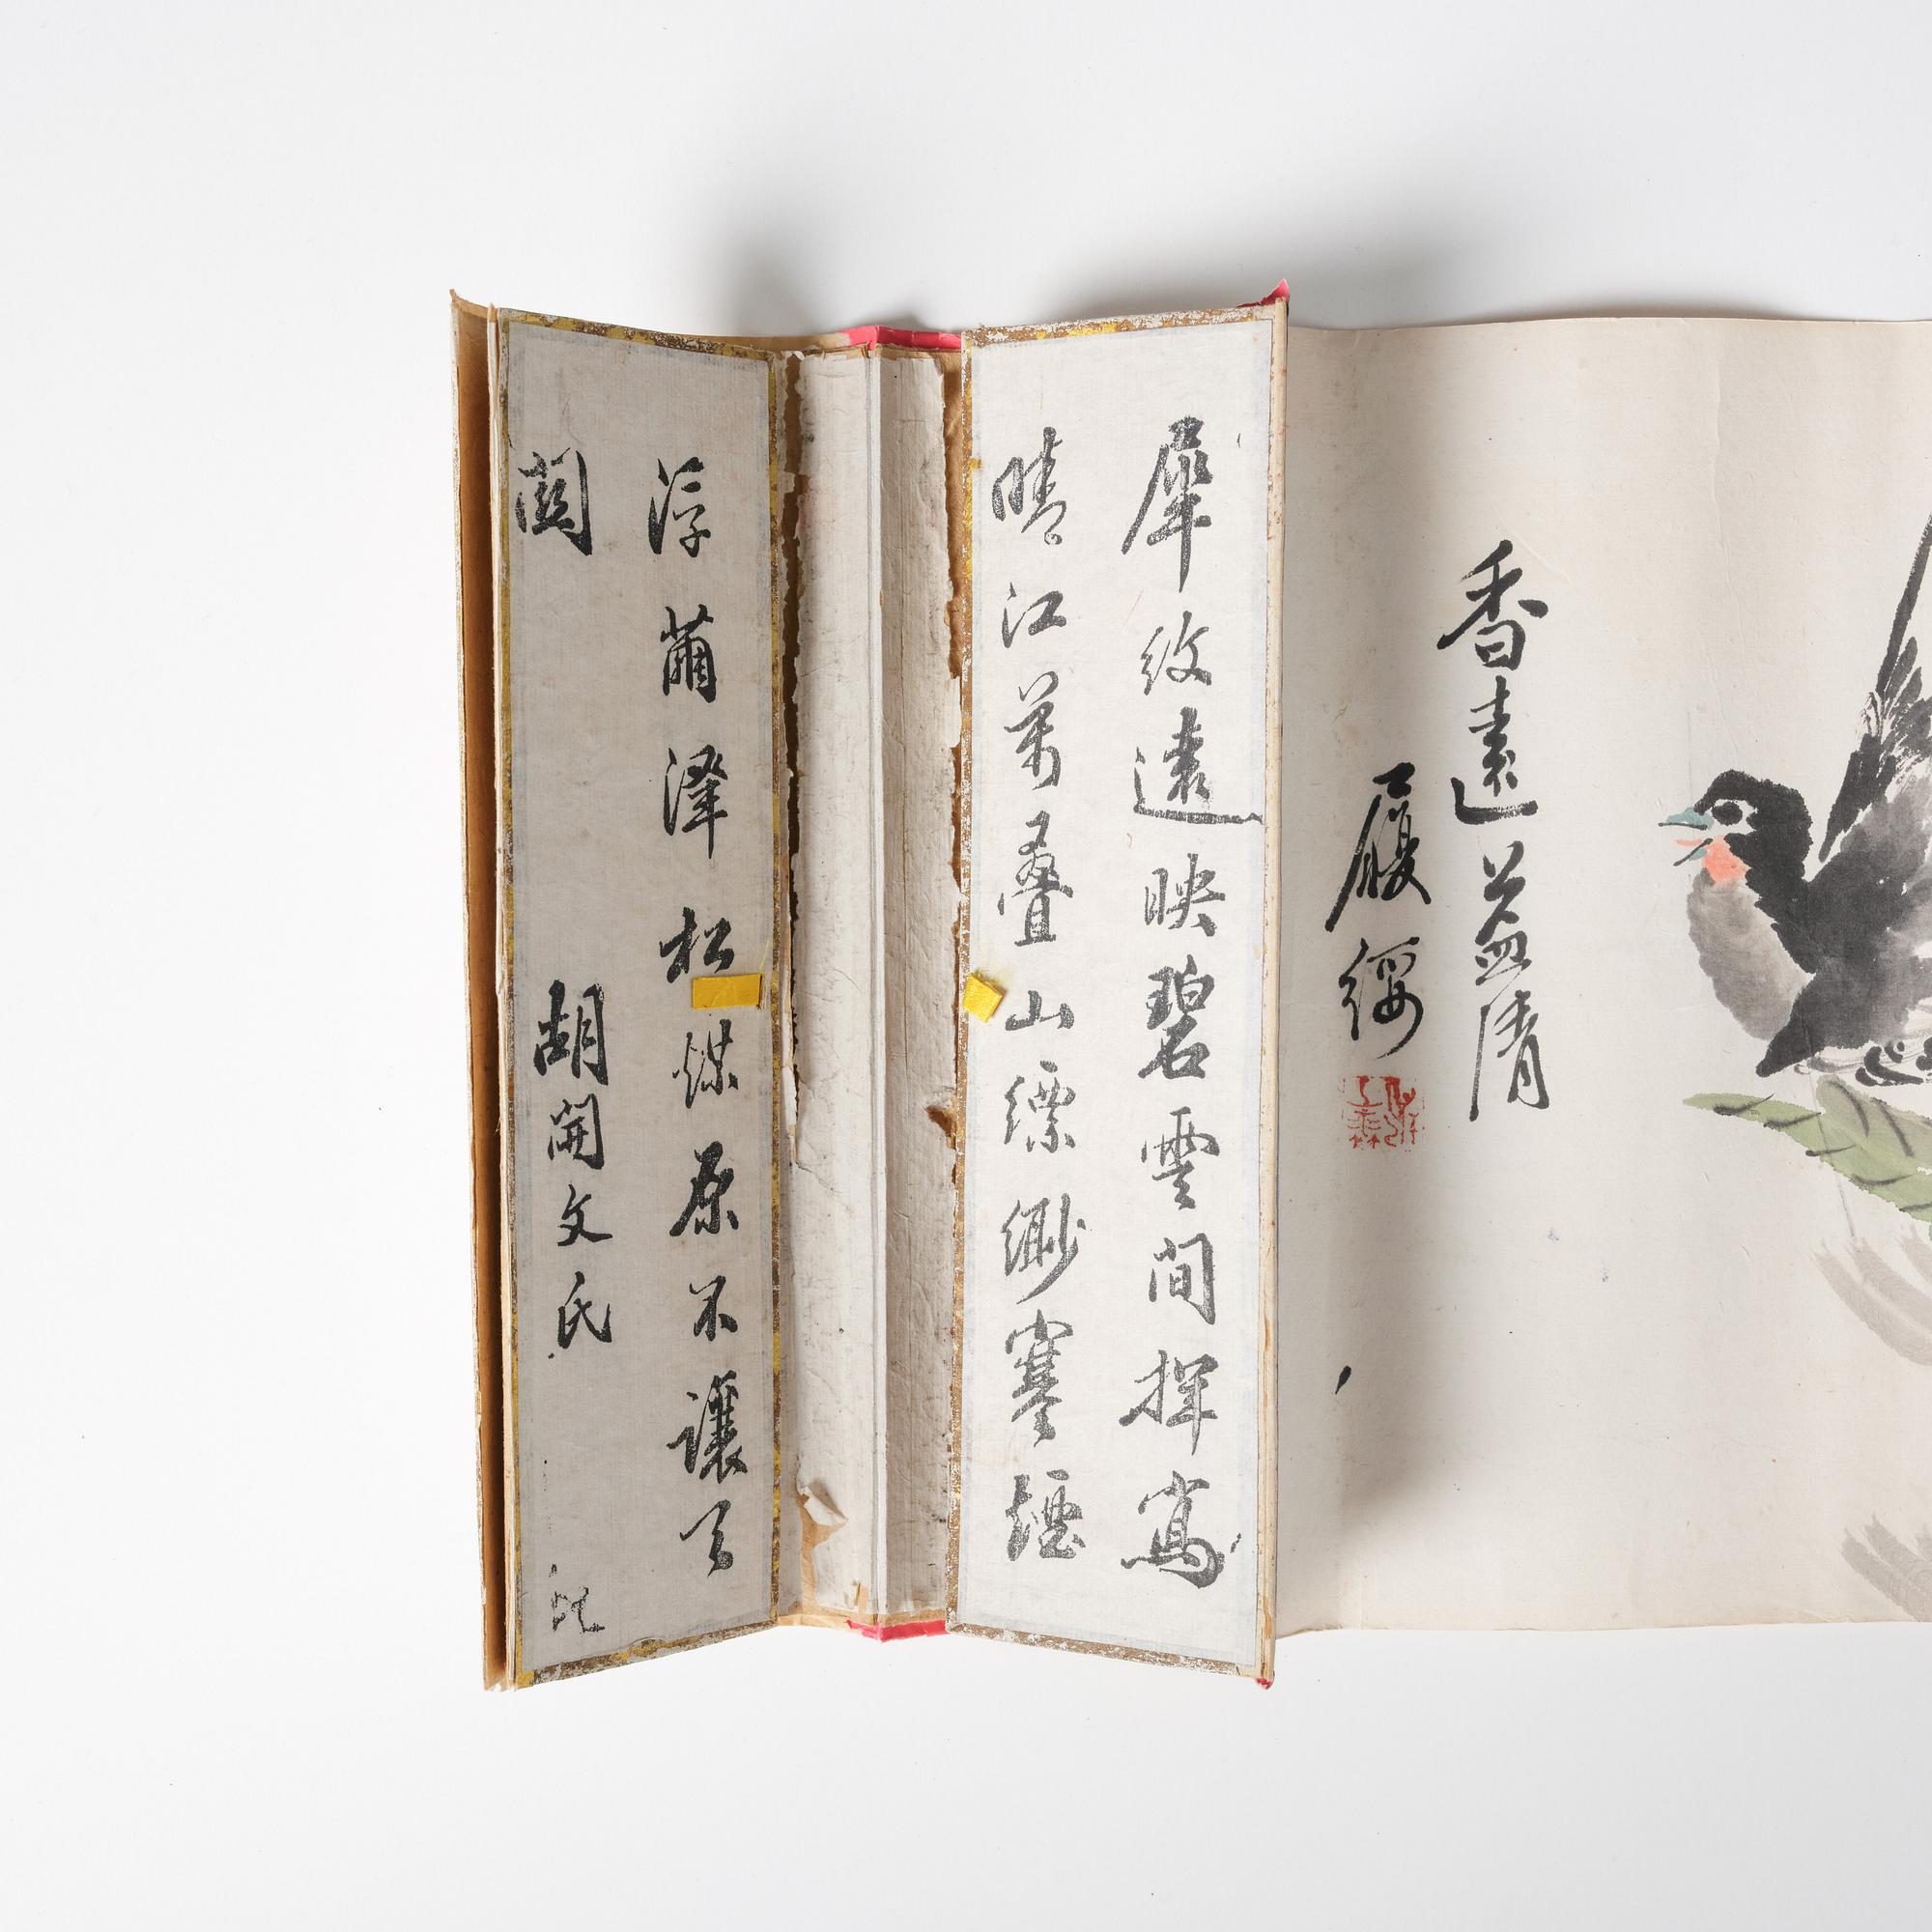 香遠益清
履纓
犀紋遠映碧雲間揮寫
晴江萬叠山縹緲寒煙
浮繭澤松煤原不讓
關 胡開文氏